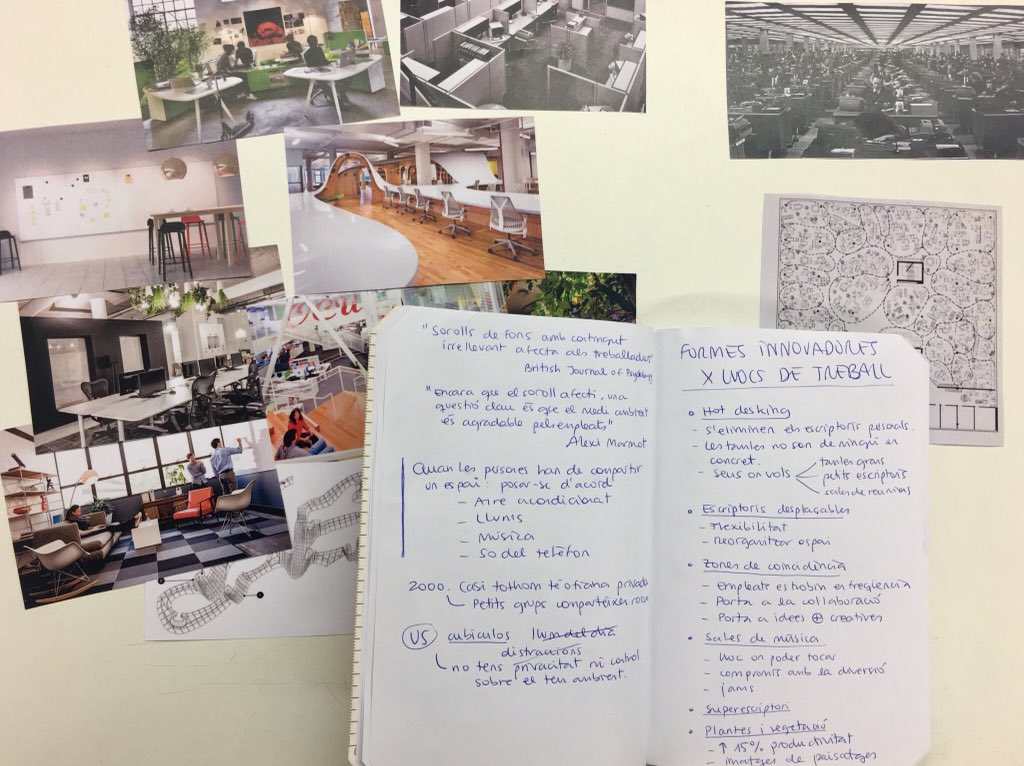 "Sorolls de fons amb contingut
irrellevant afecta als treballadors"
British Journal of Psychology
"Encara que el soroll afecti, una
questió clau és que el medi ambient
és agradable pels empleats"
Alexi Marmot
Quan les persones han de compartir
un espai: posar-se d'acord
- Aire acondicionat
- Llums
- Música
- So del telèfon
2000. Casi tothom té oficina privada
Petits grups comparteixen room
US cubiculos llum del dia
distraccions
no tens privacitat ni control
sobre el teu ambient.
FORMES INNOVADORES
X LLOCS DE TREBALL
• Hot desking
- S'eliminen els escriptoris personals.
- Les taules no son de ningú en
concret.
- Seus on vols
taules grans
petits escriptoris
sales de reunions
• Escriptoris desplaçables
- Flexibilitat
- Reorganitzar espai
• Zones de coincidència
- Empleats es trobin en freqüencia
- Porta a la col·laboració
- Porta a idees + creatives
• Sales de música
- Lloc on poder tocar
- compromís amb la diversió
- jams
• Superescriptori
• Plantes i vegetació
- ↑ 15% productivitat
- imatges de paisatges